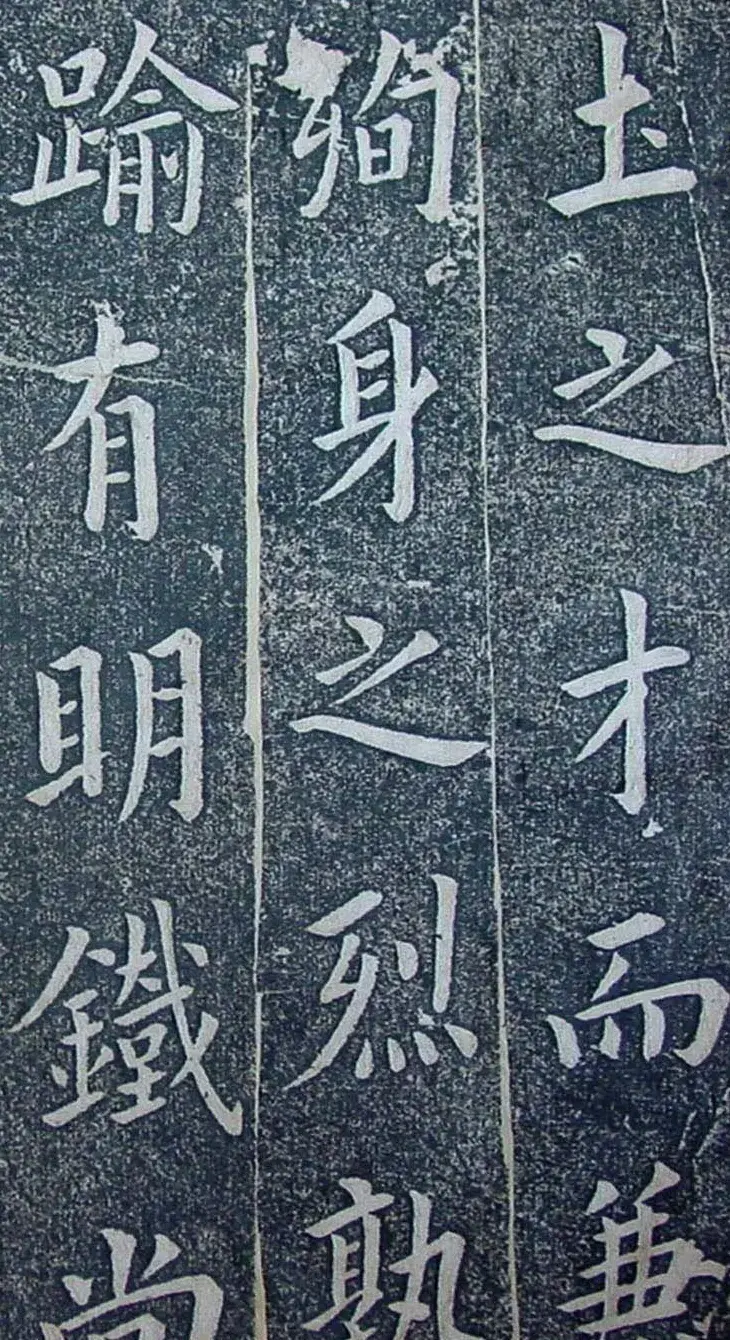 土之才而兼
殉身之烈孰
踰有明鐵尚